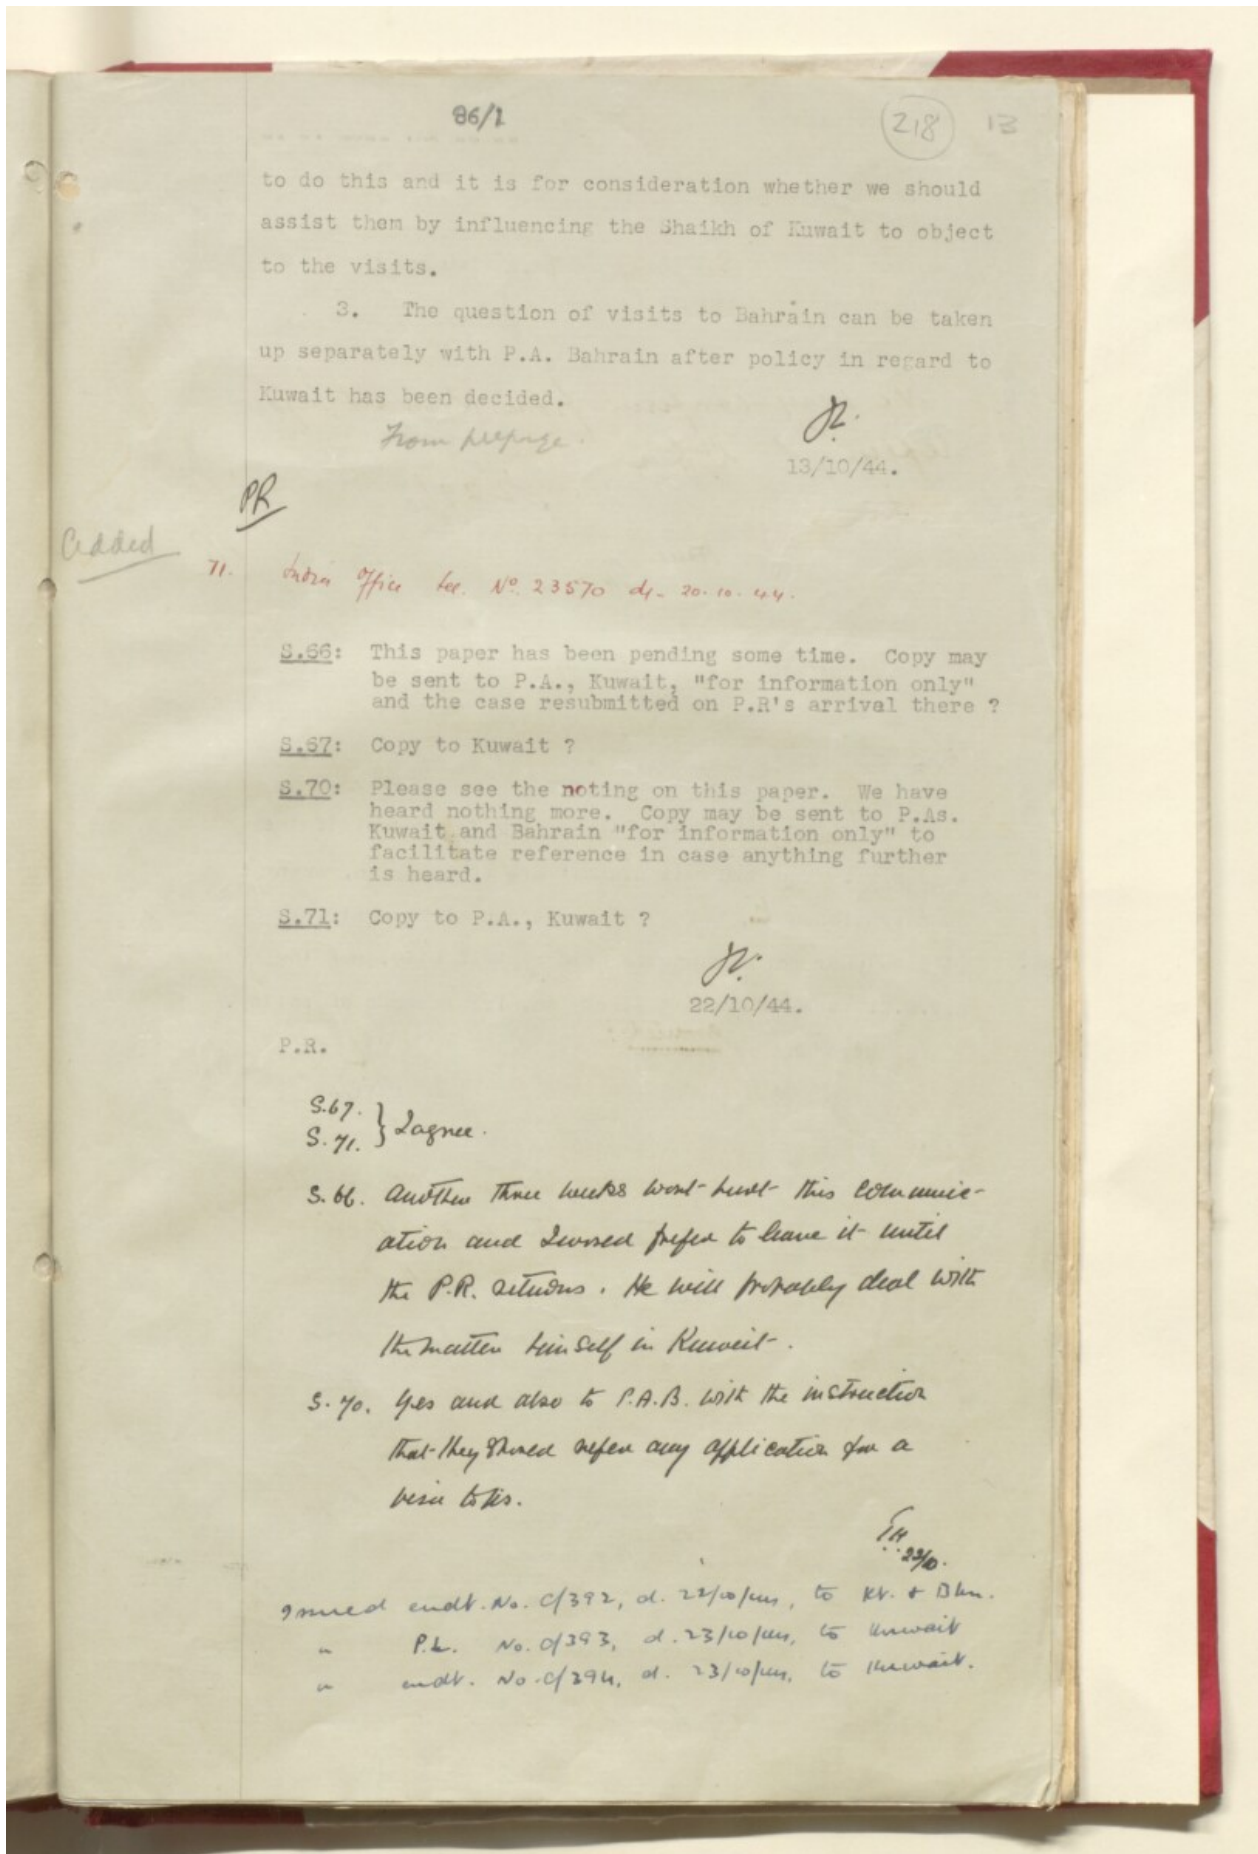 86/1
218 13
to do this and it is for consideration whether we should
assist them by influencing the Shaikh of Kuwait to object
to the visits.
3. The question of visits to Bahrain can be taken
up separately with P.A. Bahrain after policy in regard to
Kuwait has been decided.
From prepage.
13/10/44.
PR
Added
71. India Office No. 23570 20.10.44.
S.66: This paper has been pending some time. Copy may
be sent to P.A., Kuwait, "for information only"
and the case resubmitted on P.R's arrival there ?
S.67: Copy to Kuwait ?
S.70: Please see the noting on this paper. We have
heard nothing more. Copy may be sent to P.As.
Kuwait and Bahrain "for information only" to
facilitate reference in case anything further
is heard.
S.71: Copy to P.A., Kuwait ?
22/10/44.
P.R.
S.67.
S.71. } I agree.
S.66. Another three weeks wont hurt this communic-
ation and I would prefer to leave it until
the P.R. returns. He will probably deal with
the matter himself in Kuwait.
S.70. Yes and also to P.A.B. with the instruction
that they should refer any application for a
visa to us.
22/10.
Issued endt. No. C/392, d. 22/10/44, to Kt. & Bhn.
" P.L. No. C/393, d. 23/10/44, to Kuwait
" endt. No. C/394, d. 23/10/44, to Kuwait.